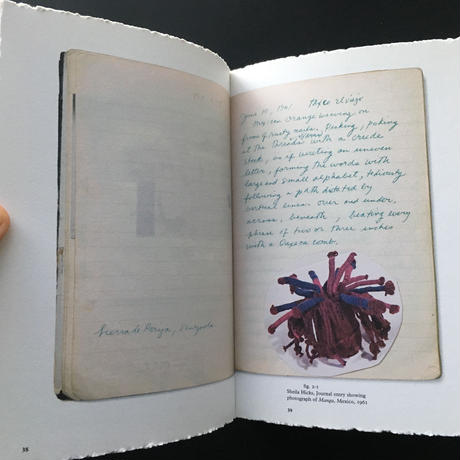 Sierra de Perija, Venezuela
38
June 10, 1961 Taxco el viejo
Mexican orange weaving on
frame of rusty nails. Pecking, poking
at the threads with a crude
stick, as if writing an uneven
letter, forming the words with
large and small alphabet, tediously
following a path dictated by
vertical lines. over and under,
across, beneath, beating every
phrase of two or three inches
with a Oaxaca comb.
fig. 2-1
Sheila Hicks, Journal entry showing
photograph of Manga, Mexico, 1961
39